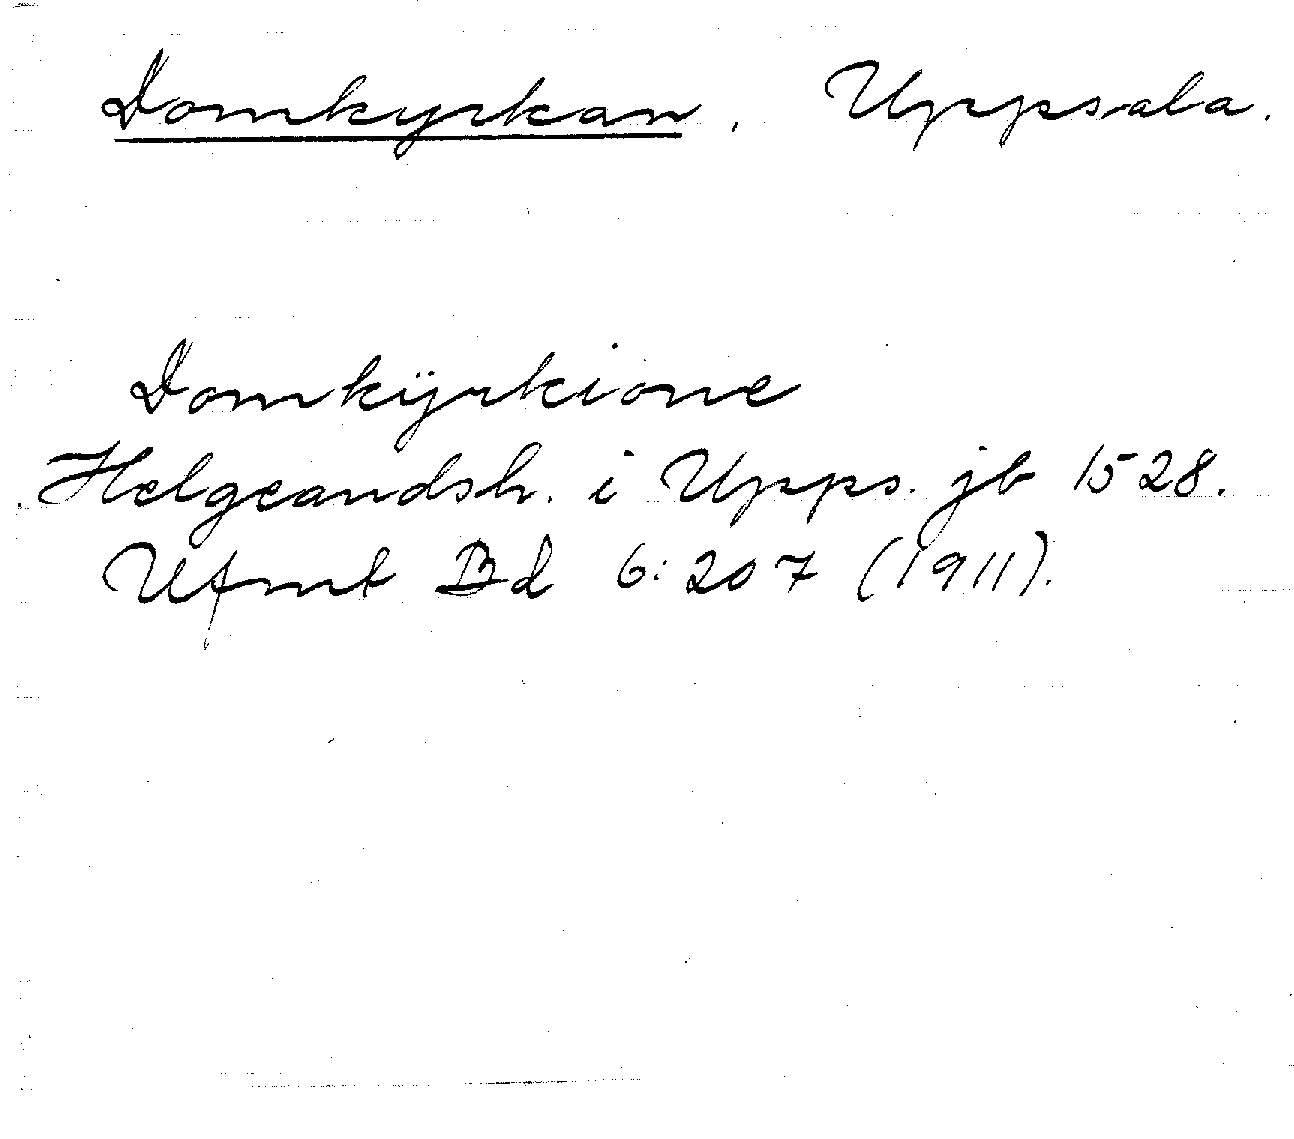 Domkyrkan, Uppsala.
Domkÿrkione
Helgeandsh. i Upps. jb 1528.
Ufmt Bd 6:207 (1911).